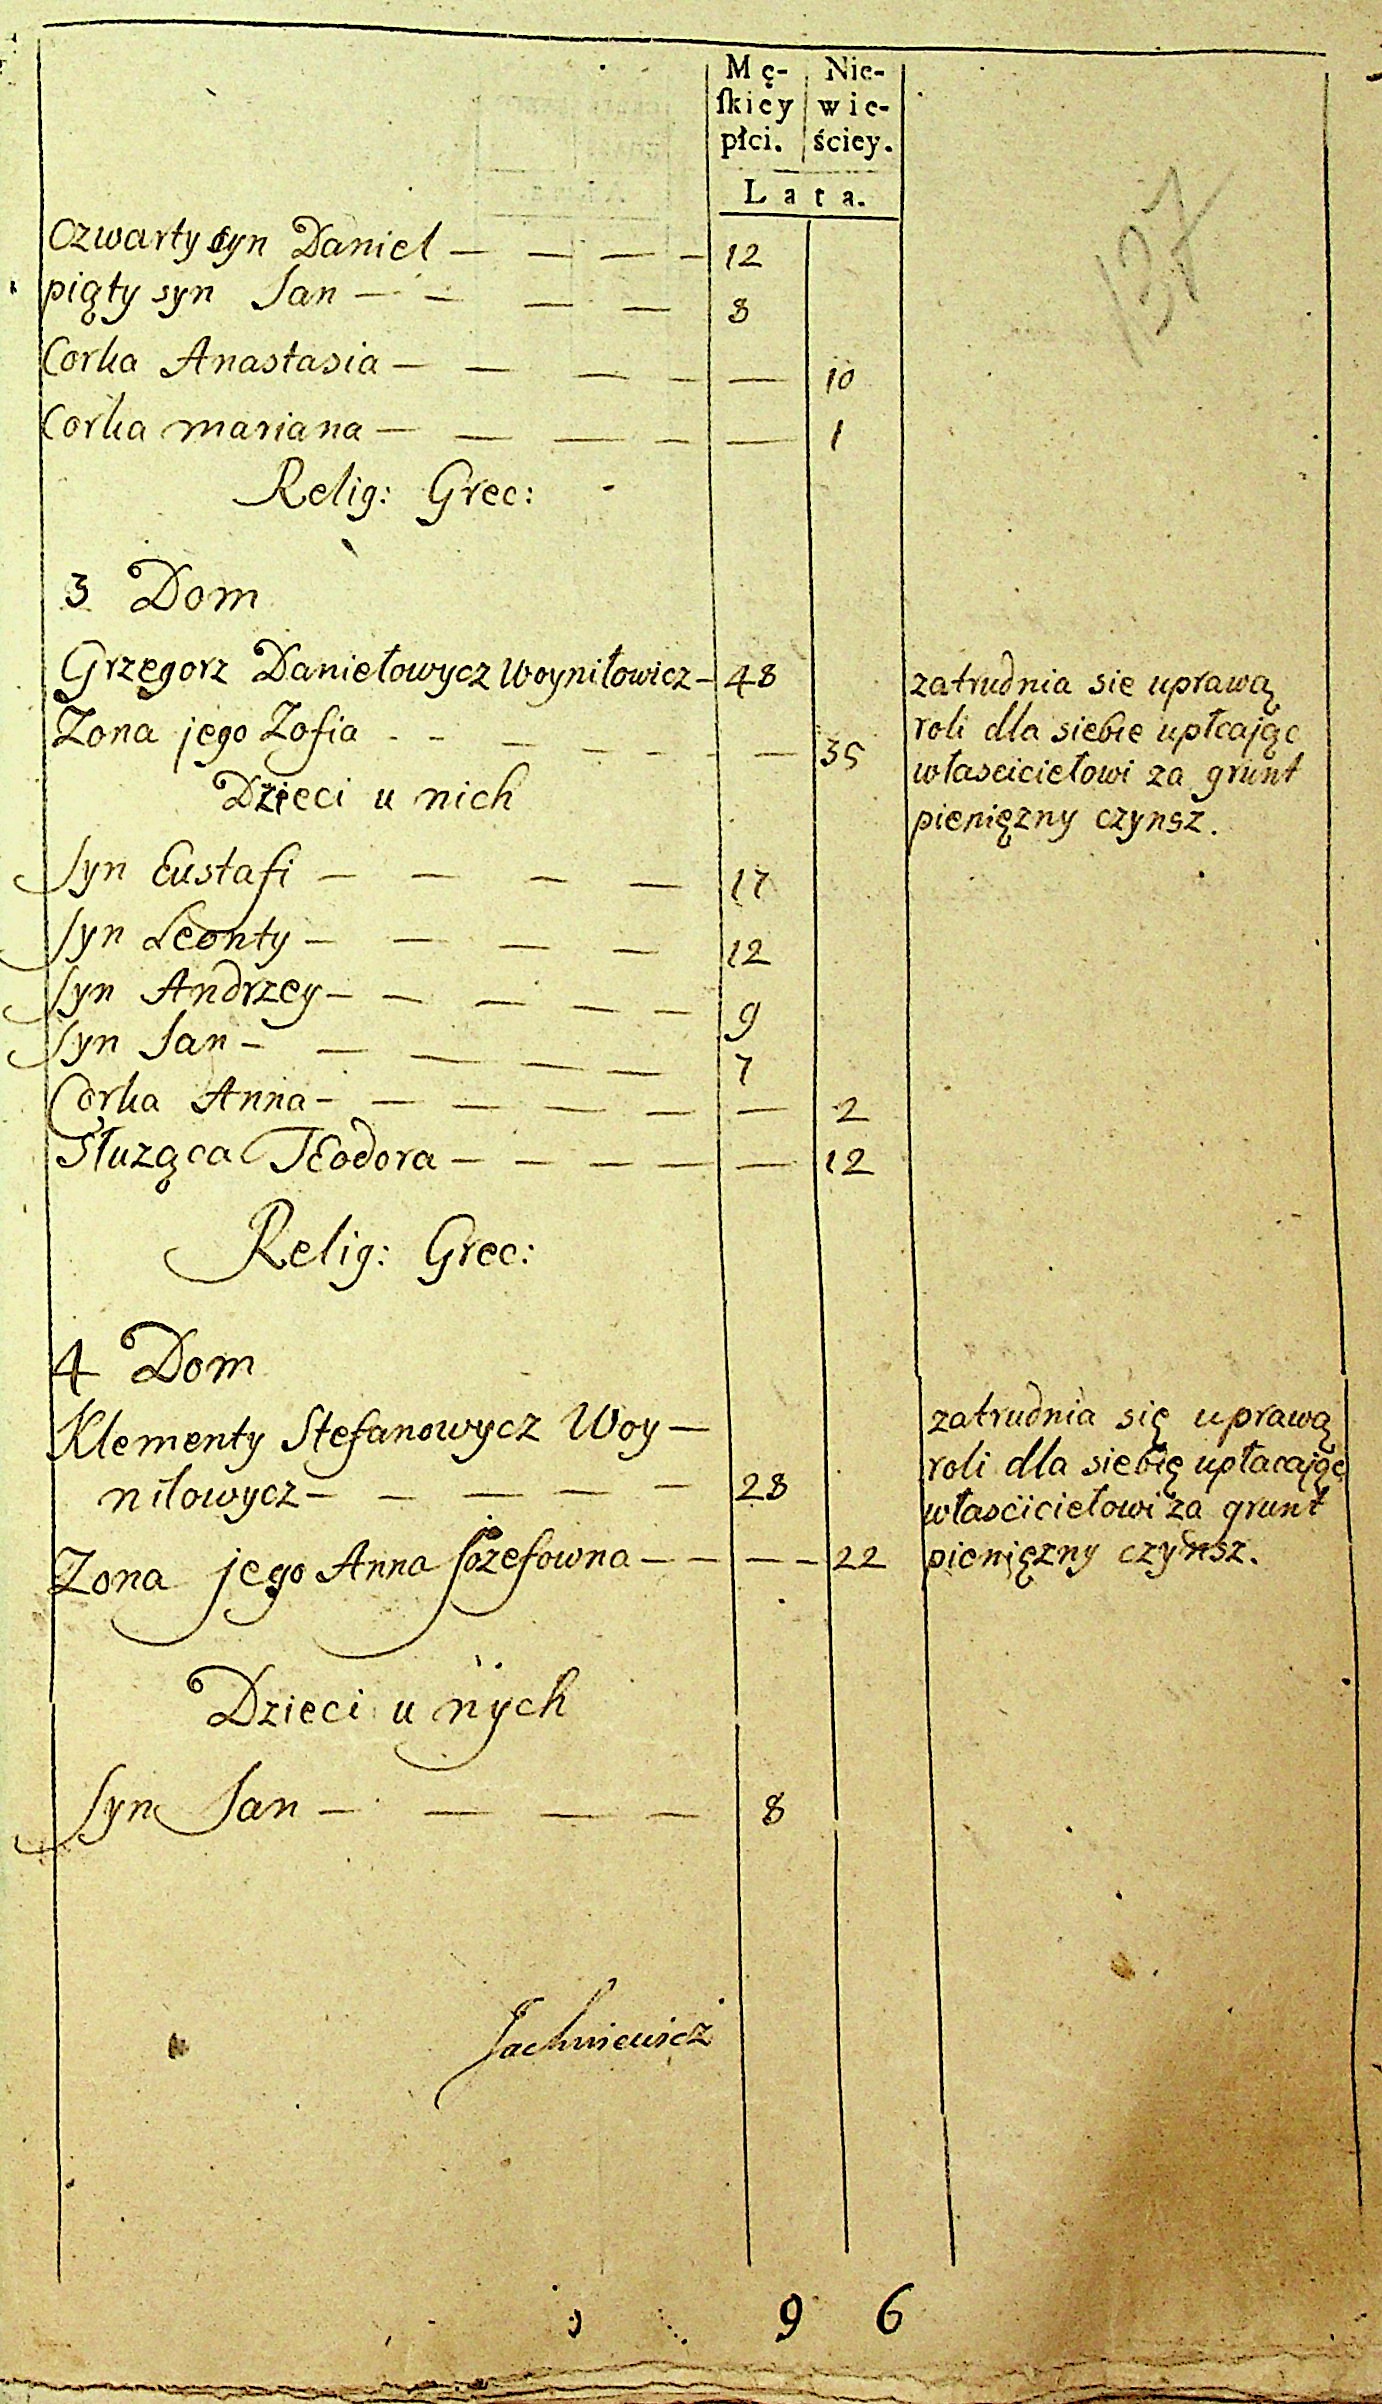 Mę- Nie-
ſkiey wie-
płci. ściey.
Lata.
137
Czwarty syn Daniel — — — — 12
piąty syn Jan — — — — 8
Corka Anastasia — — — — — 10
Corka mariana — — — — — 1
Relig: Grec:
3 Dom
Grzegorz Daniełowycz Woyniłowicz — 48
Zona jego Zofia - - — — — - — 35
zatrudnia sie uprawą
roli dla siebie upłcając
własciciełowi za grunt
pieniężny czynsz.
Dzieci u nich
Syn Eustafi — — — — 17
Syn Leonty — — — — 12
Syn Andrzey — — — — — 9
Syn Jan — — — — — 7
Corka Anna — — — — — — 2
Służąca Teodora — — — — — 12
Relig: Grec:
4 Dom
Klementy Stefanowycz Woy —
niłowycz — — — — — 28
Zona jego Anna Jozefowna — — — — 22
zatrudnia się uprawą
roli dla siebię upłacając
właścicielowi za grunt
pieniężny czynsz.
Dzieci u nych
Syn Jan — — — — 8
Jachniewicz
9 6